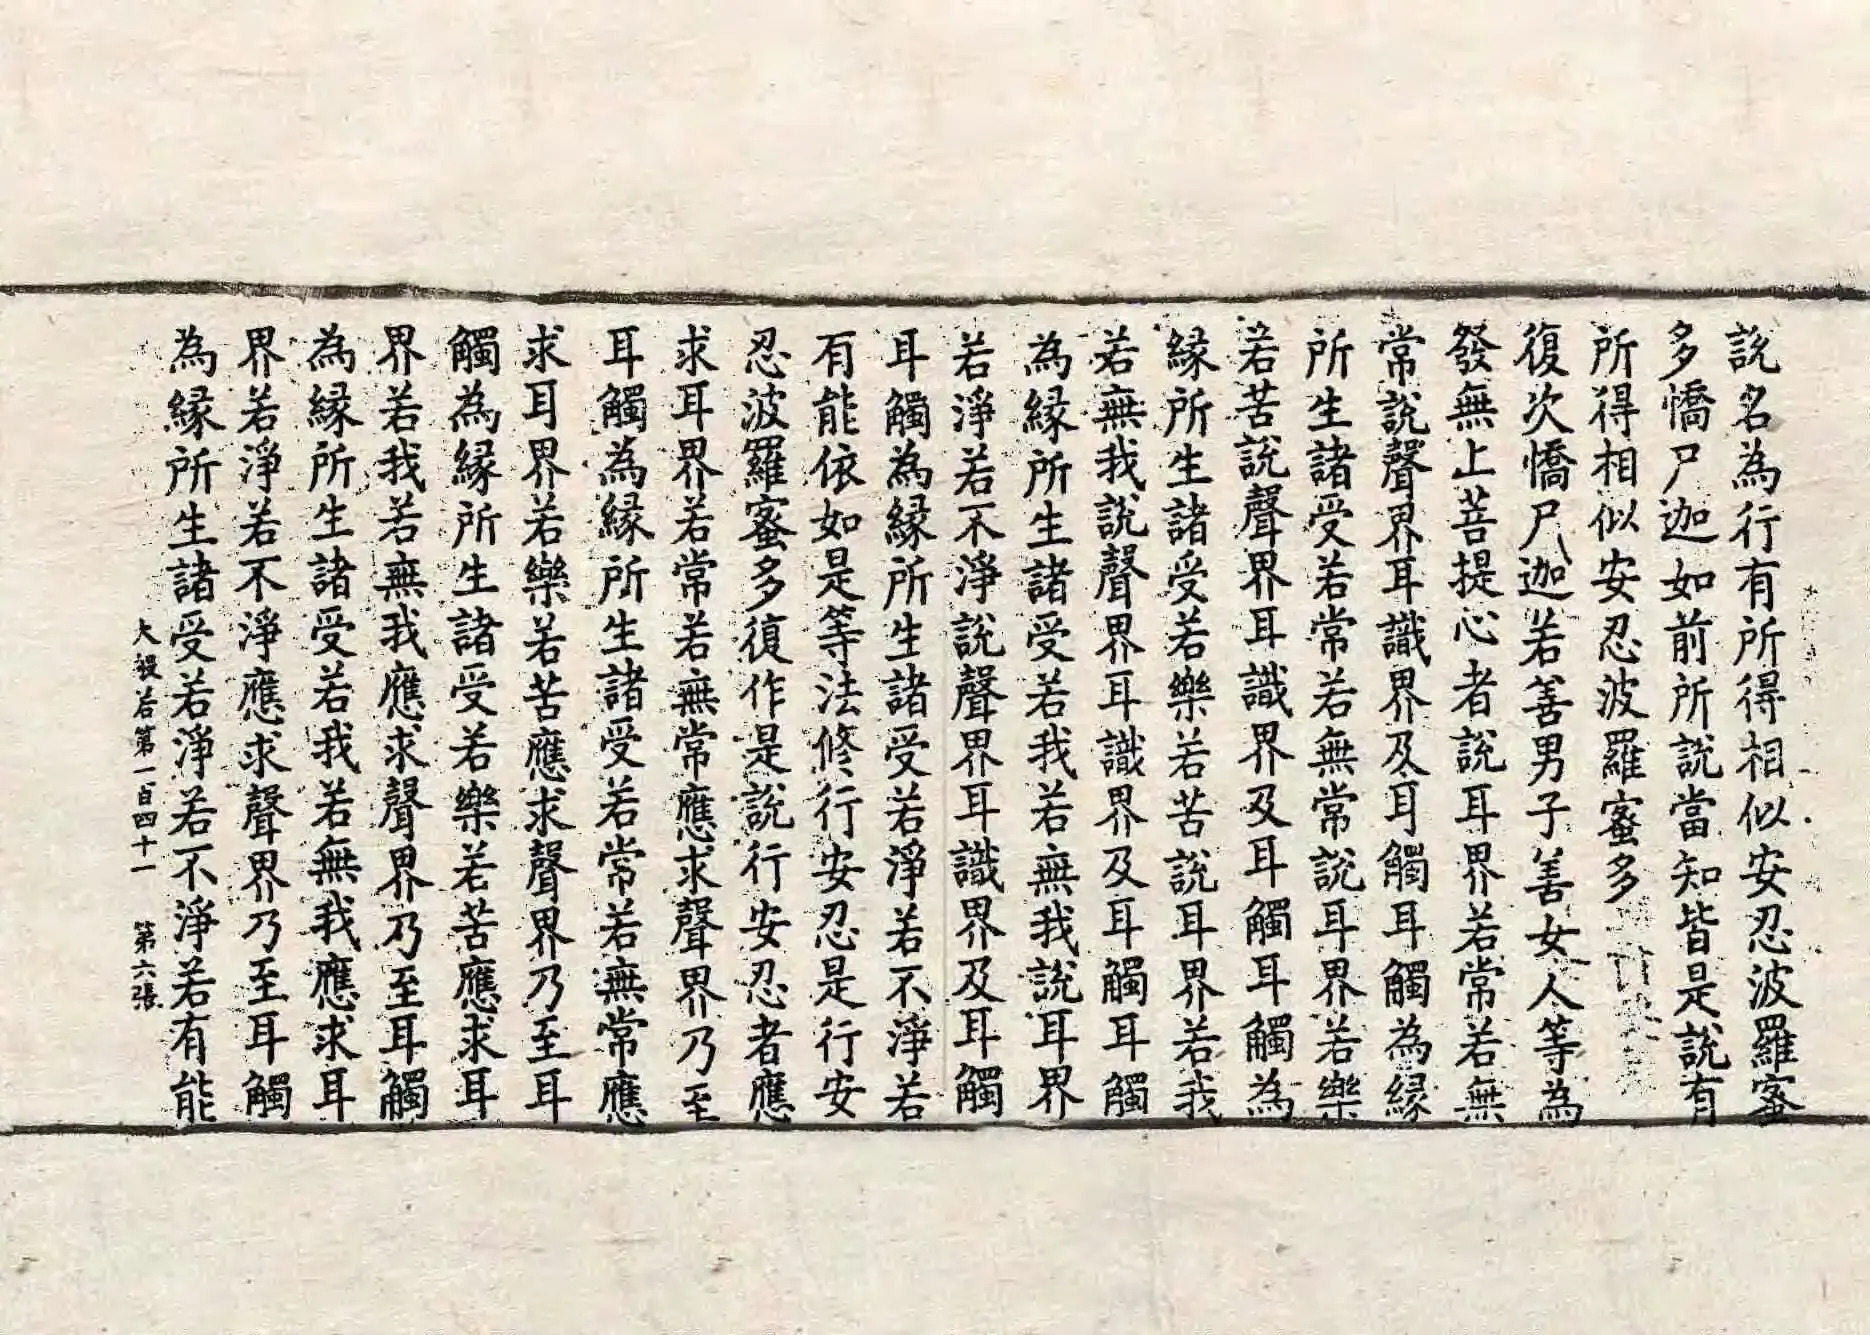 說名為行有所得相似安忍波羅蜜
多憍尸迦如前所說當知皆是說有
所得相似安忍波羅蜜多
復次憍尸迦若善男子善女人等為
發無上菩提心者說耳界若常若無
常說聲界耳識界及耳觸耳觸為緣
所生諸受若常若無常說耳界若樂
若苦說聲界耳識界及耳觸耳觸為
緣所生諸受若樂若苦說耳界若我
若無我說聲界耳識界及耳觸耳觸
為緣所生諸受若我若無我說耳界
若淨若不淨說聲界耳識界及耳觸
耳觸為緣所生諸受若淨若不淨若
有能依如是等法修行安忍是行安
忍波羅蜜多復作是說行安忍者應
求耳界若常若無常應求聲界乃至
耳觸為緣所生諸受若常若無常應
求耳界若樂若苦應求聲界乃至耳
觸為緣所生諸受若樂若苦應求耳
界若我若無我應求聲界乃至耳觸
為緣所生諸受若我若無我應求耳
界若淨若不淨應求聲界乃至耳觸
為緣所生諸受若淨若不淨若有能
大般若第一百四十一　第六張